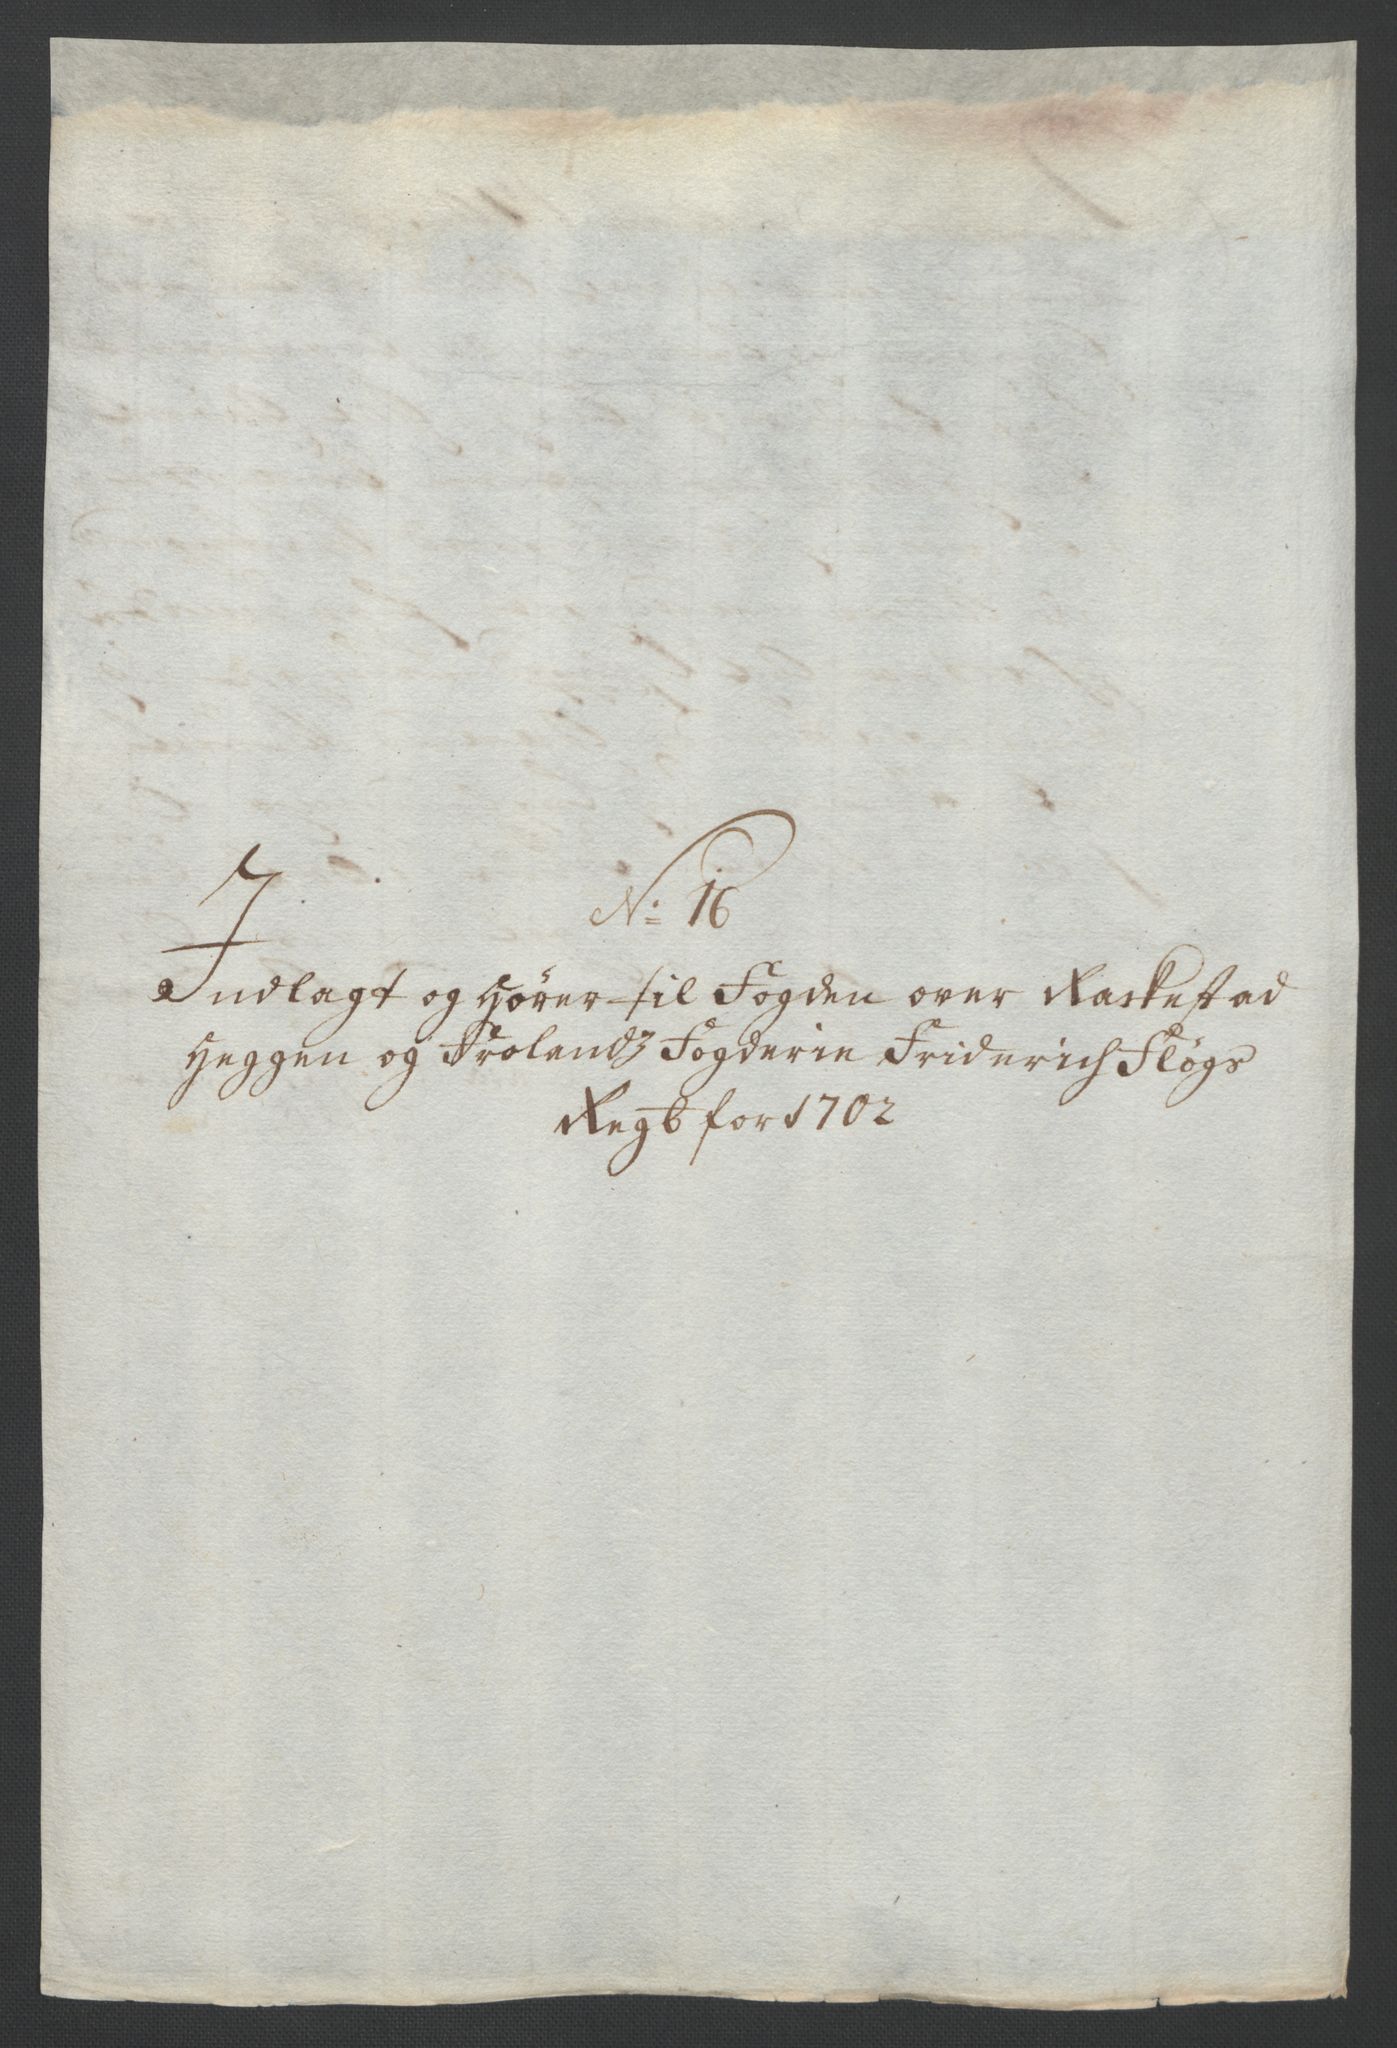 No: 16
Indlagt og hører til Fogden over Rackestad
Heggen og Frolands Fogderie Friderich Fløgs
Regb for 1702